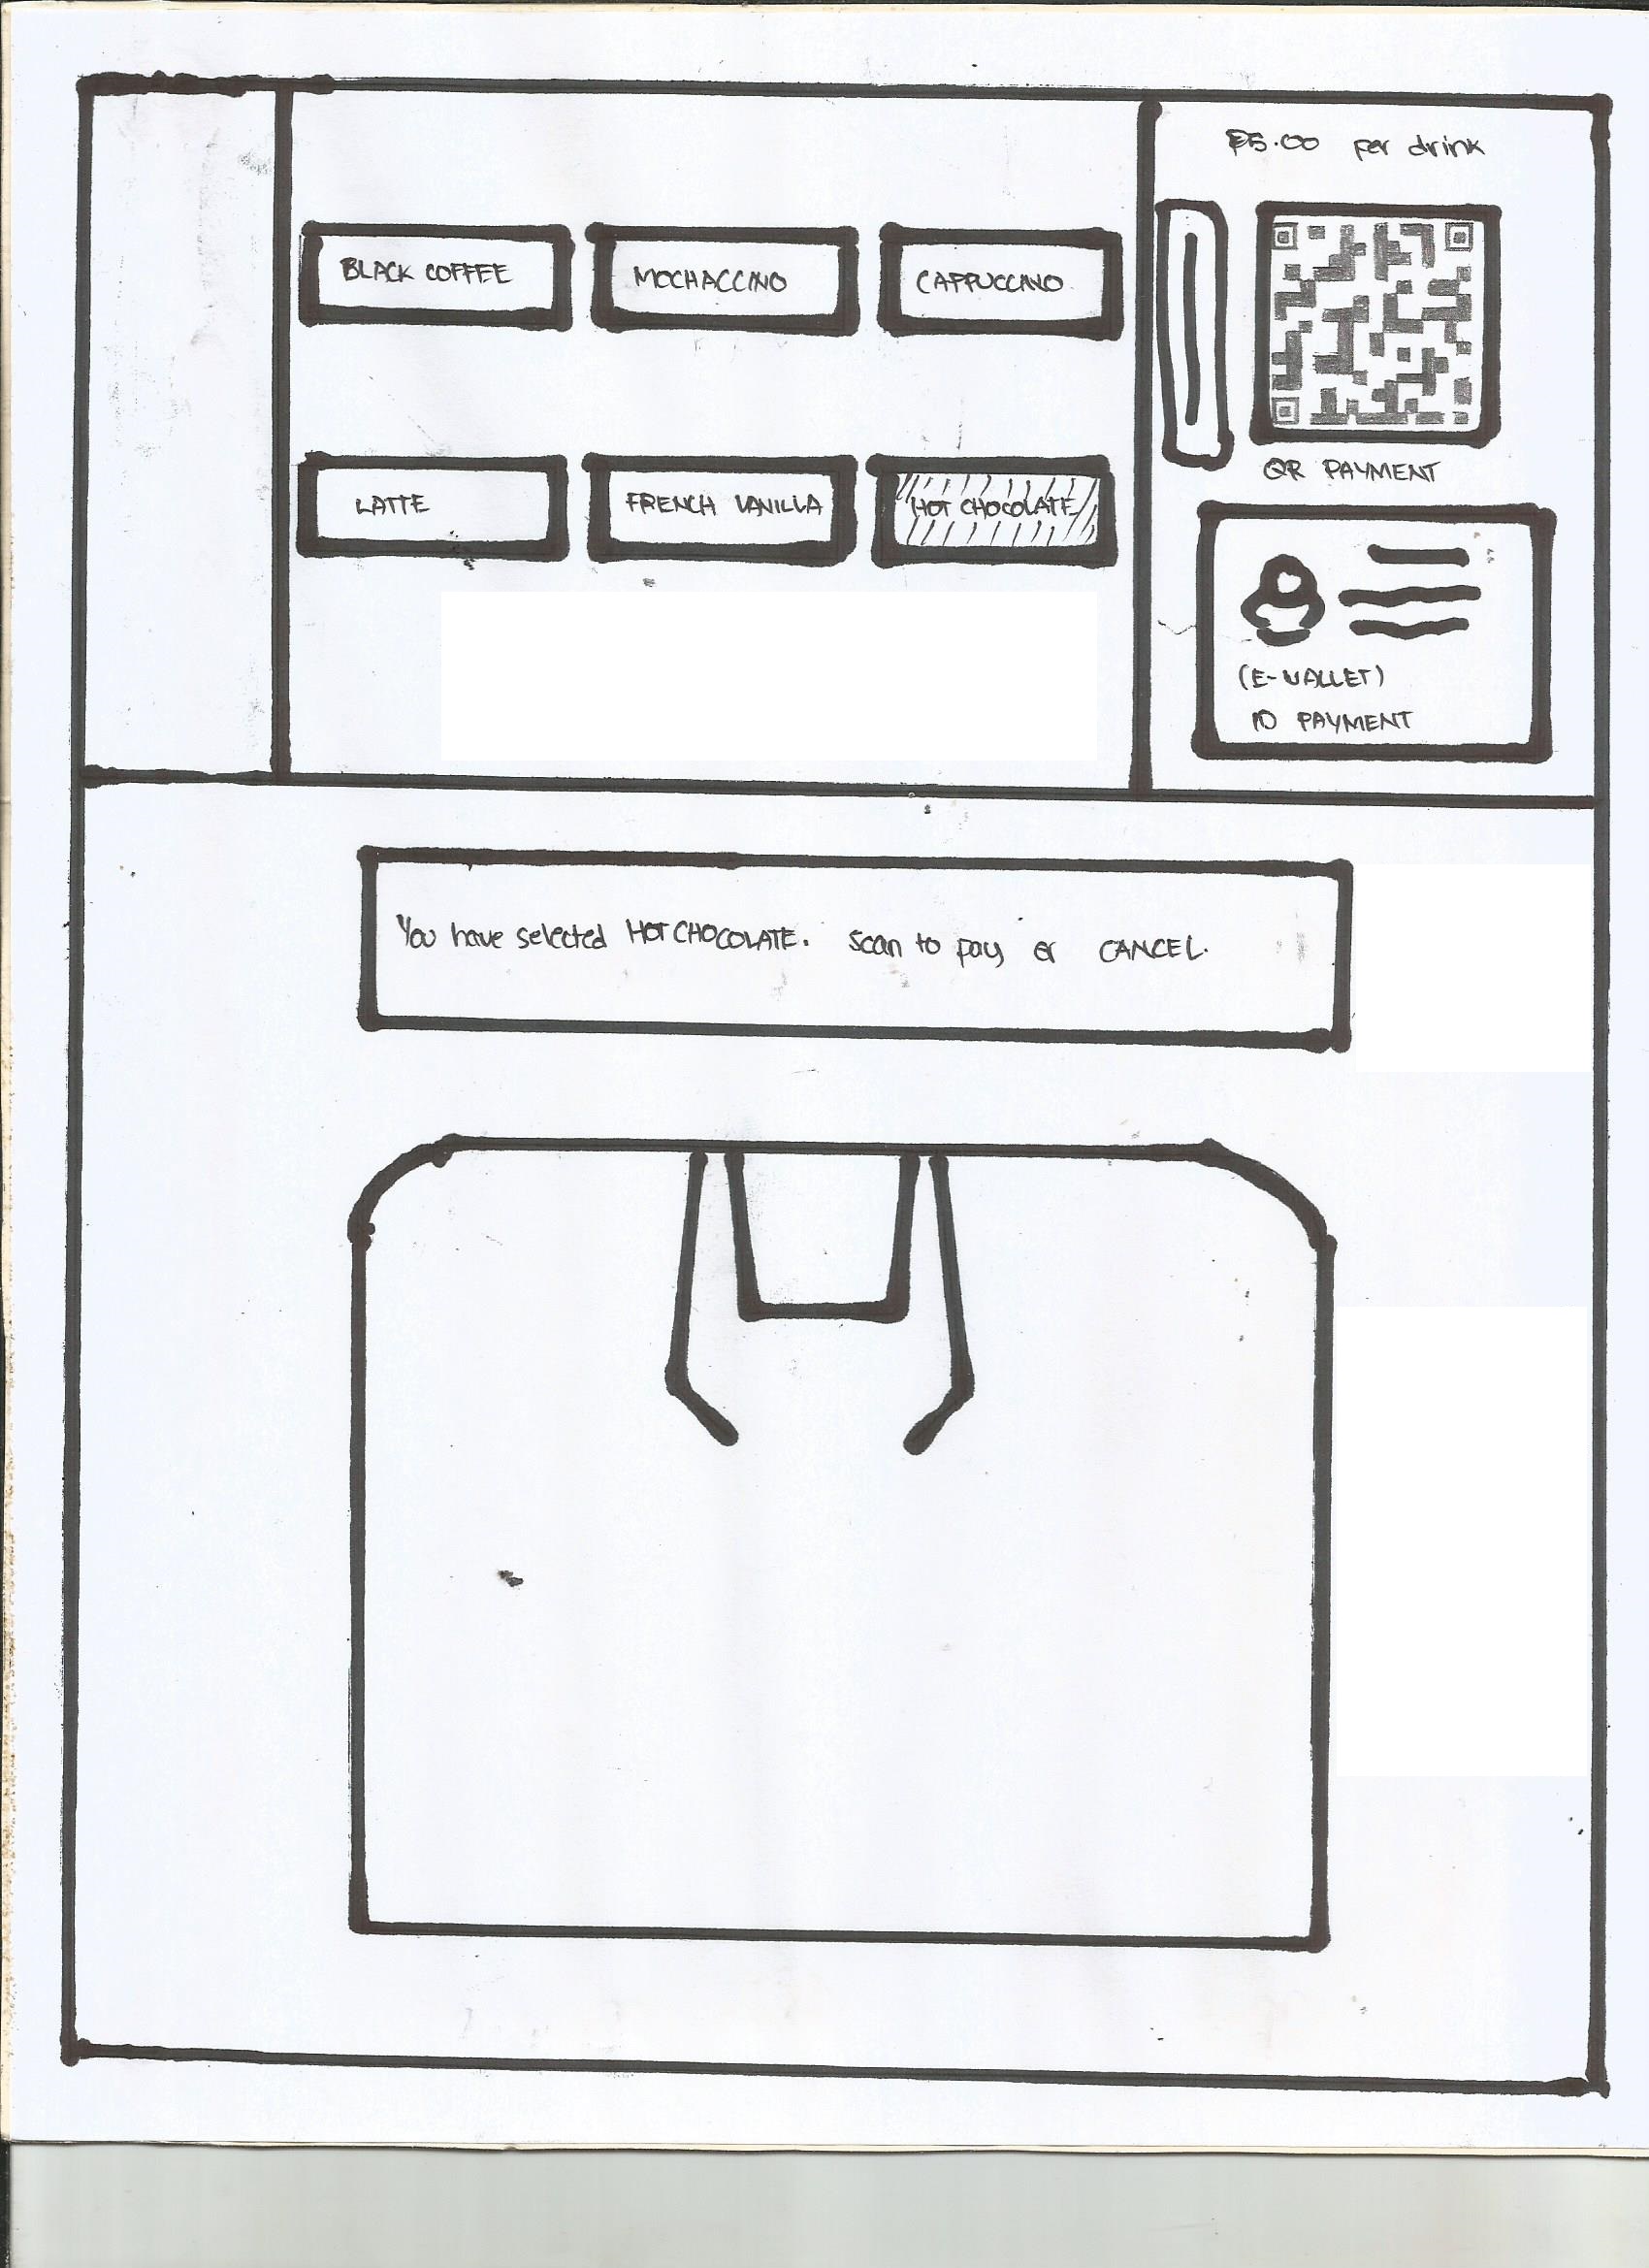 ₱5.00 per drink
BLACK COFFEE
MOCHACCINO
CAPPUCCINO
LATTE
FRENCH VANILLA
HOT CHOCOLATE
QR PAYMENT
(E-WALLET)
ID PAYMENT
You have selected HOT CHOCOLATE. Scan to pay or CANCEL.